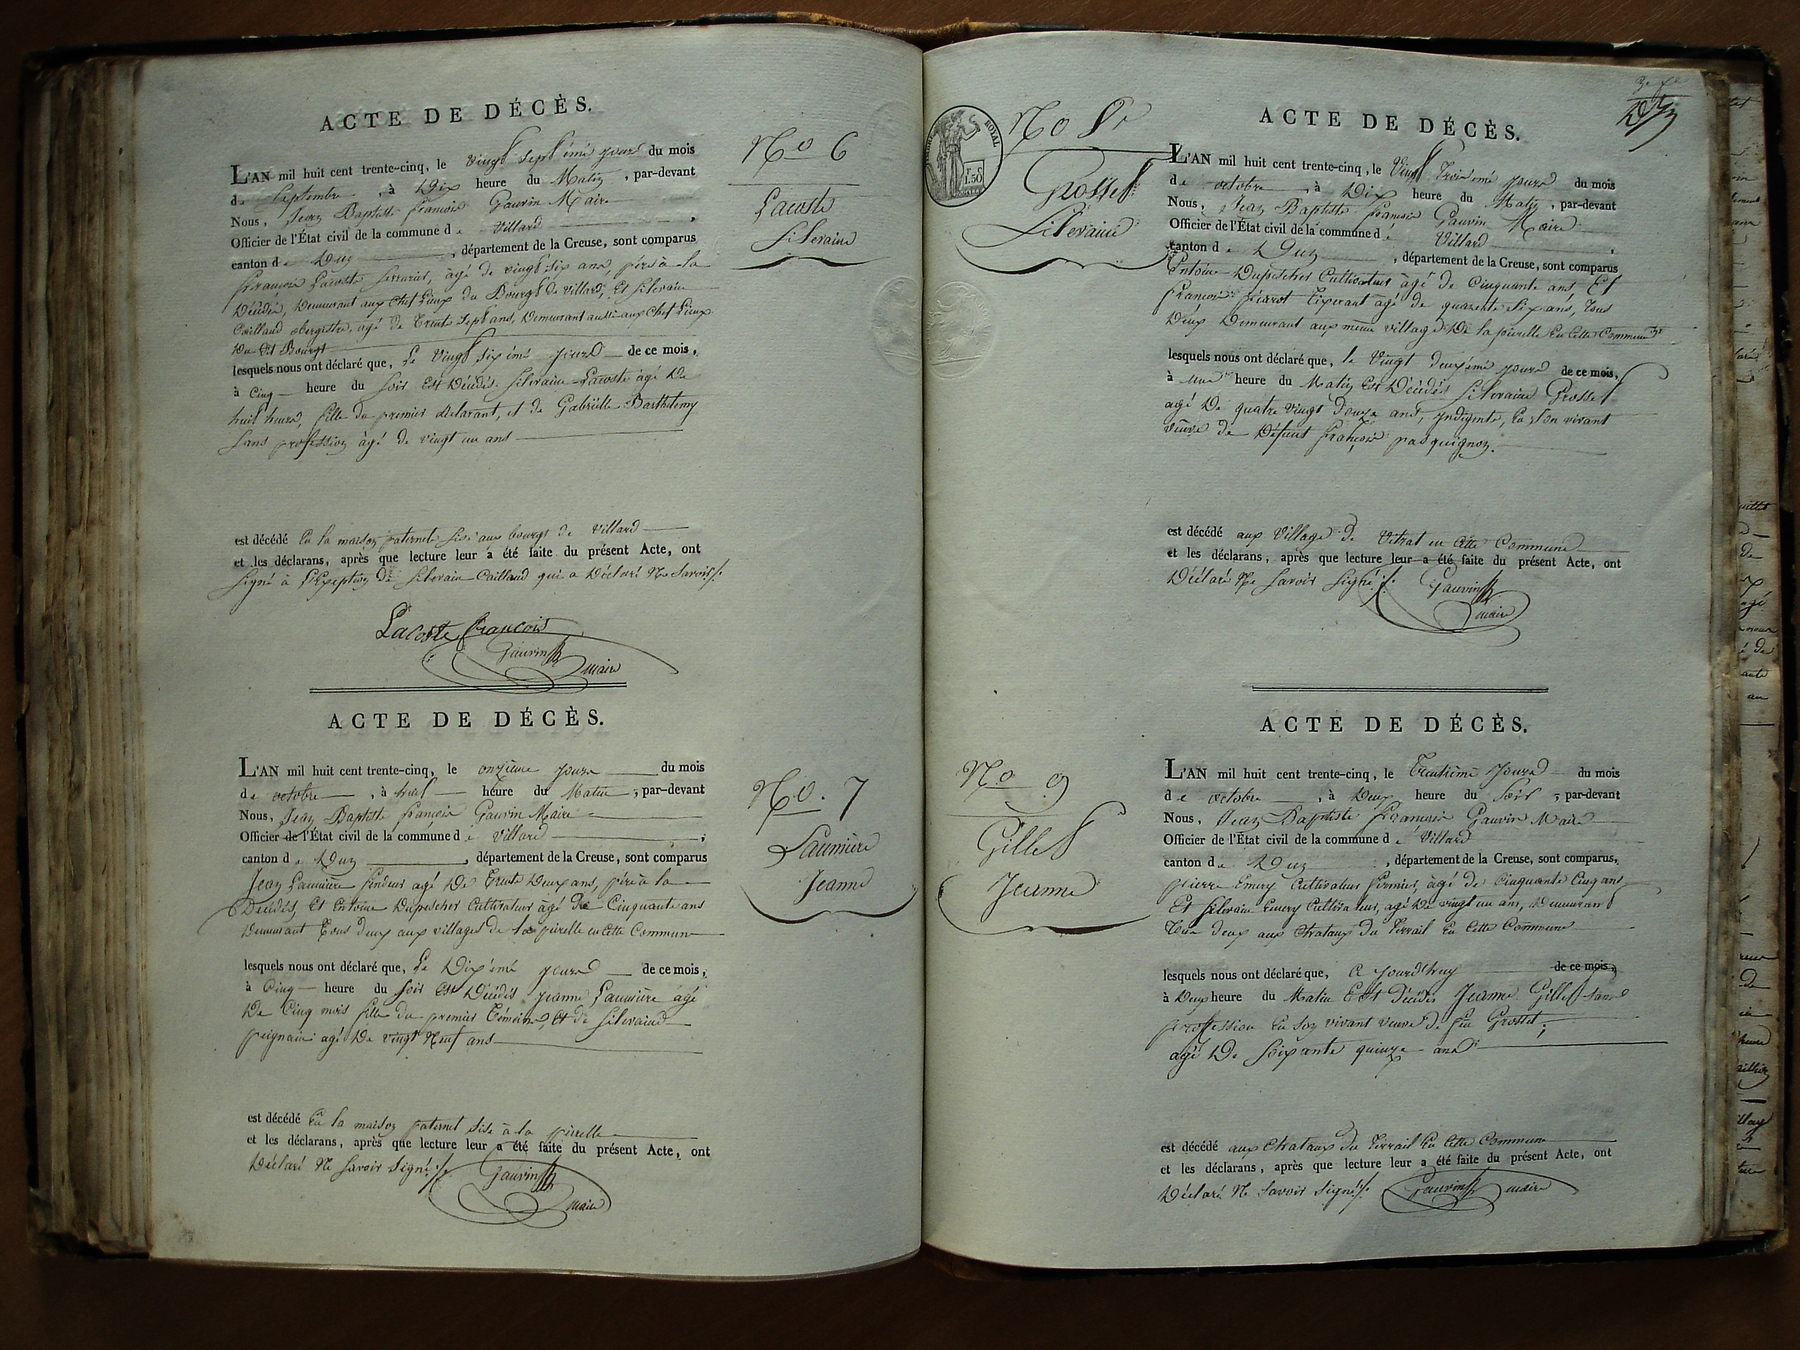 ACTE DE DÉCÈS.
L'AN mil huit cent trente-cinq, le Vingt Septiémé jour du mois
de Septembre, à Dix heure du Matin, par-devant
Nous, Jean Baptiste François Gauvin Maire
Officier de l'État civil de la commune de Villard,
canton de Dun, département de la Creuse, sont comparus
François Lacoste Serrurier, âgé de vingt six ans, père à la
Décédée, Demeurant aux Chef Lieux du Bourgt de Villard, Et Silevain
Caillaud obergiste, agé de Trente Sept ans, Demeurant aussi aux Chef Lieux
Du dit Bourgt
lesquels nous ont déclaré que, Le Vingt Sixiémé jour de ce mois,
à Cinq heure du Soir Est Décédés Silevaine Lacoste âgé De
huit heures, fille du premier déclarant, et de Gabriëlle Barthélemy
Sans profession âgé de vingt un ans
est décédé En la maison paternel Sise aux bourgt de Villard
et les déclarans, après que lecture leur a été faite du présent Acte, ont
Signé à l'Exeption De Silevain Caillaud qui a Déclaré Ne Savoir
Lacoste François
Gauvin
maire
No 6
Lacoste
Silevaine
ACTE DE DÉCÈS.
L'AN mil huit cent trente-cinq, le onzième jour du mois
de octobre, à huit heure du Matin, par-devant
Nous, Jean Baptiste François Gauvin Maire
Officier de l'État civil de la commune de Villard,
canton de Dun, département de la Creuse, sont comparus
Jean Laumière agé De Trente Deux ans, père à la
Décédés, Et Entoine Dupescher Cultivateur âgé de Cinquante ans
Demeurant Tous deux aux villages de la pierelle en Cette Commune
lesquels nous ont déclaré que, Le Dixiémé jour de ce mois,
à Cinq heure du Soir Est Décédés Jeanne Laumière agé
De Cinq mois fille du premier Témoin, Et De Silevaine
peignain agé De vingt Neuf ans
est décédé En la maison paternel Sise à la pierelle
et les déclarans, après que lecture leur a été faite du présent Acte, ont
Déclaré Ne Savoir Signé
Gauvin
maire
No. 7
Laumière
Jeanne
ROYAL
1.50
No 8
Grosset
Silevaine
ACTE DE DÉCÈS.
L'AN mil huit cent trente-cinq, le Vingt Troisiémé jour du mois
de octobre, à Dix heure du Matin, par-devant
Nous, Jean Baptiste François Gauvin Maire
Officier de l'État civil de la commune de Villard,
canton de Dun, département de la Creuse, sont comparus
Entoine Dupescher Cultivateur âgé de Cinquante ans Et
François pierrot agé de quarente Six ans, Tous
Deux Demeurant aux même village De la pierelle En Cette Commune
lesquels nous ont déclaré que, le Vingt Deuxiémé jour de ce mois,
à une heure du Matin Est Décédés Silevaine Grosset
agé De quatre vingt Douze ans, indigente, En Son vivant
veuve de Défunt François pasquignon.
est décédé aux Village de Vitrat en Cette Commune
et les déclarans, après que lecture leur a été faite du présent Acte, ont
Déclaré Ne Savoir Signé
Gauvin
maire
No 9
Gillet
Jeanne
ACTE DE DÉCÈS.
L'AN mil huit cent trente-cinq, le Trentième Jour du mois
de octobre, à Deux heure du Soir, par-devant
Nous, Jean Baptiste François Gauvin Maire
Officier de l'État civil de la commune de Villard,
canton de Dun, département de la Creuse, sont comparus,
pierre Emery Cultivateur fermier, âgé de Cinquante Cinq ans
Et Silevain Emery Cultivateur, agé De vingt un ans, Demeurant
Tous deux aux Chataux du Verrail En Cette Commune
lesquels nous ont déclaré que, Ce Jourd'huy de ce mois,
à Deux heure du Matin Est décédés Jeanne Gillet Sans
profession En Son vivant veuve De feu Grosset,
agé De Soixante quinze ans
est décédé aux Chataux du Verrail En Cette Commune
et les déclarans, après que lecture leur a été faite du présent Acte, ont
Déclaré Ne Savoir Signé
Gauvin maire